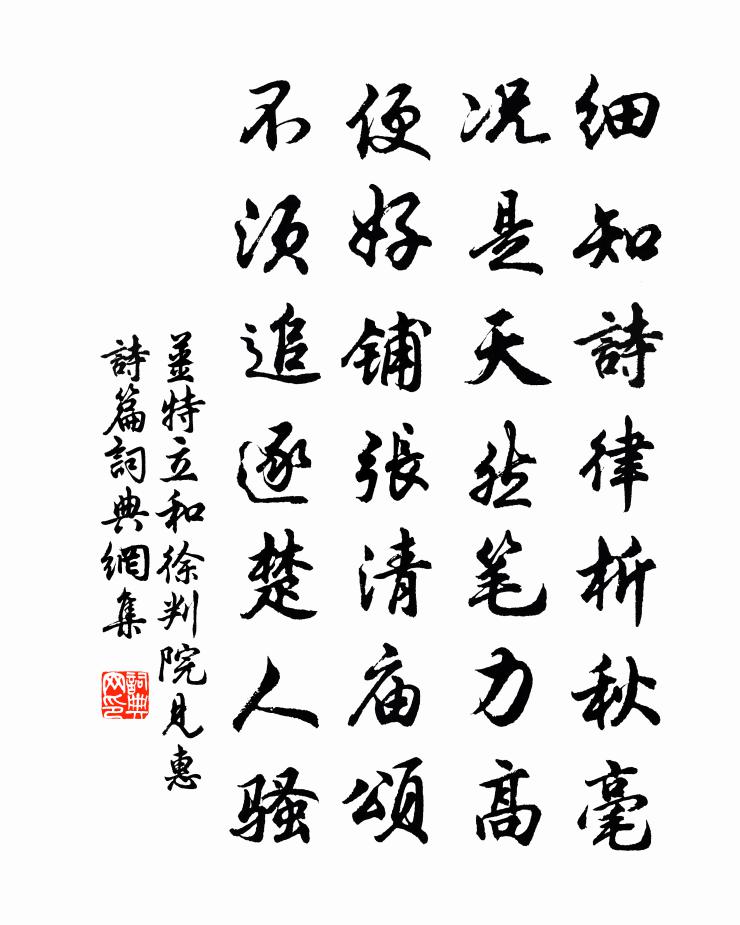 细知詩律析秋毫
况是天然笔力高
便好铺張清庙頌
不须追逐楚人骚
姜特立和徐判院見惠
詩篇詞典網集
詞典
网印